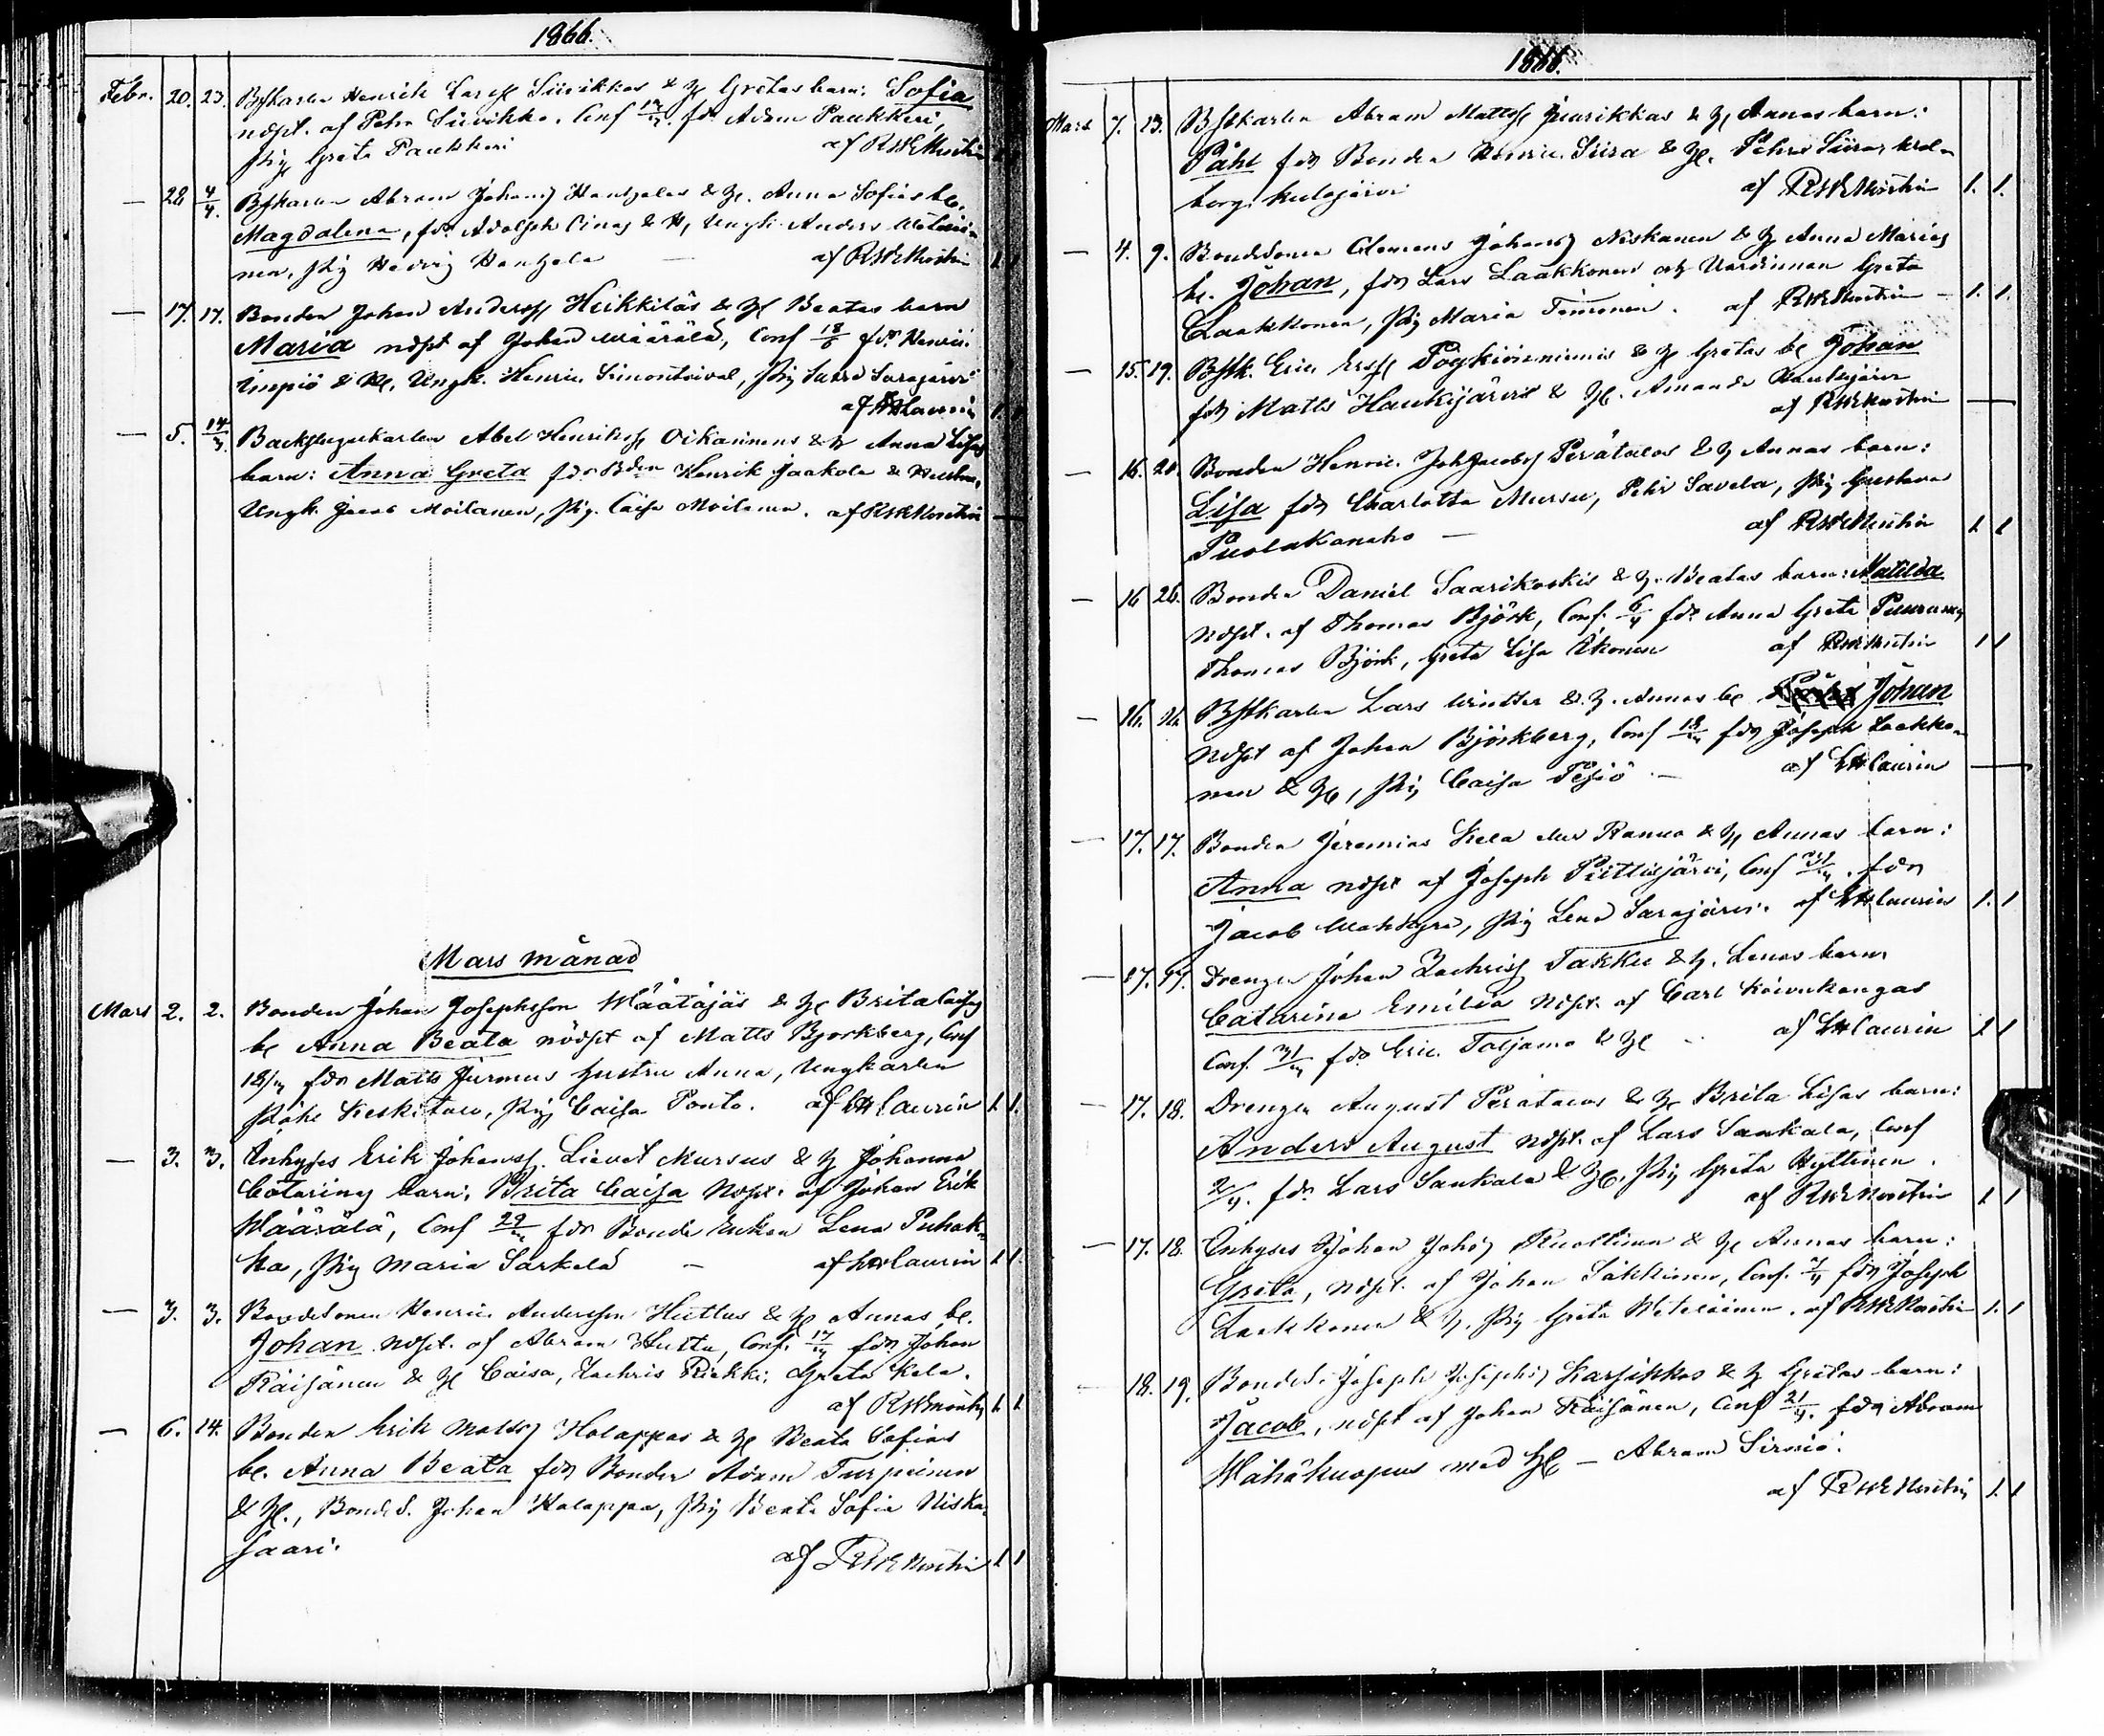 1866.
Febr. 20. 23. Bstkarlen Henrik Larss Siivikkos & H Gretas barn: Sofia
nödpt. af Petr Siivikko. Conf fdr Adam Paukkeri,
Pig Greta Paukkeri af RWEMontin
— 28 4/4. Bstkarlen Abram Johans Hentzelas & H. Anna Sofias be.
Magdalena, fdr Adolph & H, Ungk. Anders
nen, Pig Hedvig Hentzela — af RWEMontin 1 1
— 17. 17. Bonden Johan Anderss Heikkiläs & H Beatas barn
Maria nödpt af Johan Määrälä, Conf 18/6 fdr Henric
Impiö & H, Ungk. Henric Simontaival, Pig Sarajärvi
af LHLaurin 1 1
— 5. 14/3. Backstugukarlen Abel Henrikss Oikarinens & H Anna Lisas
barn: Anna Greta fdr Bden Henrik Jaakola & Hustru,
Ungk. Jacob Moilanen, Pig. Caisa Moilanen. af RWEMontin —
Mars månad
Mars 2. 2. Bonden Johan Josephsson Määtäjäs & H Brita Caisas
be Anna Beata nödpt af Matts Bjorkberg, Conf
18/ fdr Matts Jurmus hustru Anna, Ungkarlen
Påhl Keskitalo, Pig Caisa Ponto. af LHLaurin 1 1.
— 3. 3. Inhyses Erik Johanss. Mursus & H Johanna
Catarinas barn. Brita Caisa Nödpt. af Johan Erik
Määrälä, Conf 29/ fdr Bonde Enkan Lena Puhak-
ka, Pig Maria Särkelä — af LHLaurin 1 1.
— 3. 3. Bondesonen Henric Andersson Huttus & H Annas be.
Johan nödpt. af Abram Hutta, Conf. 17/ fdr Johan
Räisänen & H Caisa, Zachris Riekki, Greta Kela.
af RWEMontin 1 1
— 6. 14. Bonden Erik Matts Holappas & H Beata Sofias
be. Anna Beata fdr Bonden Adam Turpeinen
& H., Bondes. Johan Holappa, Pig Beata Sofia Niska-
saari. af RWEMontin 1 1
1866.
Mars 7. 13. Bstkarlen Abram Mattss Juurikkas & H Annas barn:
Påhl fdr Bonden Henric Siira & H. Pehr Siira,
berg. Kulojärvi af RWEMontin 1. 1.
— 4. 9. Bondesonen Clemens Johans Niskanen & H Anna Marias
be. Johan, fdr Lars Laakkonen och Värdinnan Greta
Laakkonen, Pig Maria Timonen. af RWEMontin — 1. 1.
— 15. 19. Bstk. Eric Erss Pöykiöniemis & H Gretas be Johan
fdr Matts Haukijärvi & H. Amanda Haukijärvi
af RWEMontin —
— 16. 20. Bonden Henric Joh Jacobs Perätalos & H Annas barn:
Lisa fdr Charlotta Mursu, Pehr Savela, Pig Gustava
Puolakanaho — af RWEMontin 1 1
— 16 26. Bonden Daniel Saarikoskis & H. Beatas barn: Matilda
nödpt. af Thomas Björk, Conf. 6/4 fdr Anna Greta
Thomas Björk, Greta Lisa Ikonen af RWEMontin 1 1
— 16. 16. Bstkarlen Lars Wintter & H. Annas be Johan
Nödpt af Johan Björkberg, Conf 18/ fdr Joseph Laakko-
nen & H, Pig Caisa Pesiö — af LHLaurin —
— 17. 17. Bonden Jeremias Kela Ranua & H Annas barn:
Anna nödpt af Joseph Piittisjärvi, Conf 31/. fdr
Jacob, Pig Lena Sarajärvi. af LHLaurin 1. 1
— 17. 17. Drengen Johan Zachriss Takku & H. Lenas barn
Catarina Emilia Nödpt. af Carl Koivukangas
Conf. 31/ fdr Eric Taljamo & H — af LHLaurin 1 1
— 17. 18. Drengen August Perätalos & H Brita Lisas barn:
Anders August Nödpt. af Lars Sankala, Conf
2/4. fdr Lars Sankala & H. Pig Greta Hyttinen.
af RWEMontin 1 1
— 17. 18. Inhyses Johan Johs Kuollinen & H Annas barn:
Greta, nödpt. af Johan Säkkinen, Conf. fdr Joseph
Laakkonen & H. Pig Greta. af RWEMontin 1. 1
18. 19. Bondes. Joseph Josephs Karsikkos & H Gretas barn:
Jacob, nödpt af Johan Räisänen, Conf 21/4. fdr Abram
Wähäkuopus med H — Abram Sirniö.
af RWEMontin 1. 1